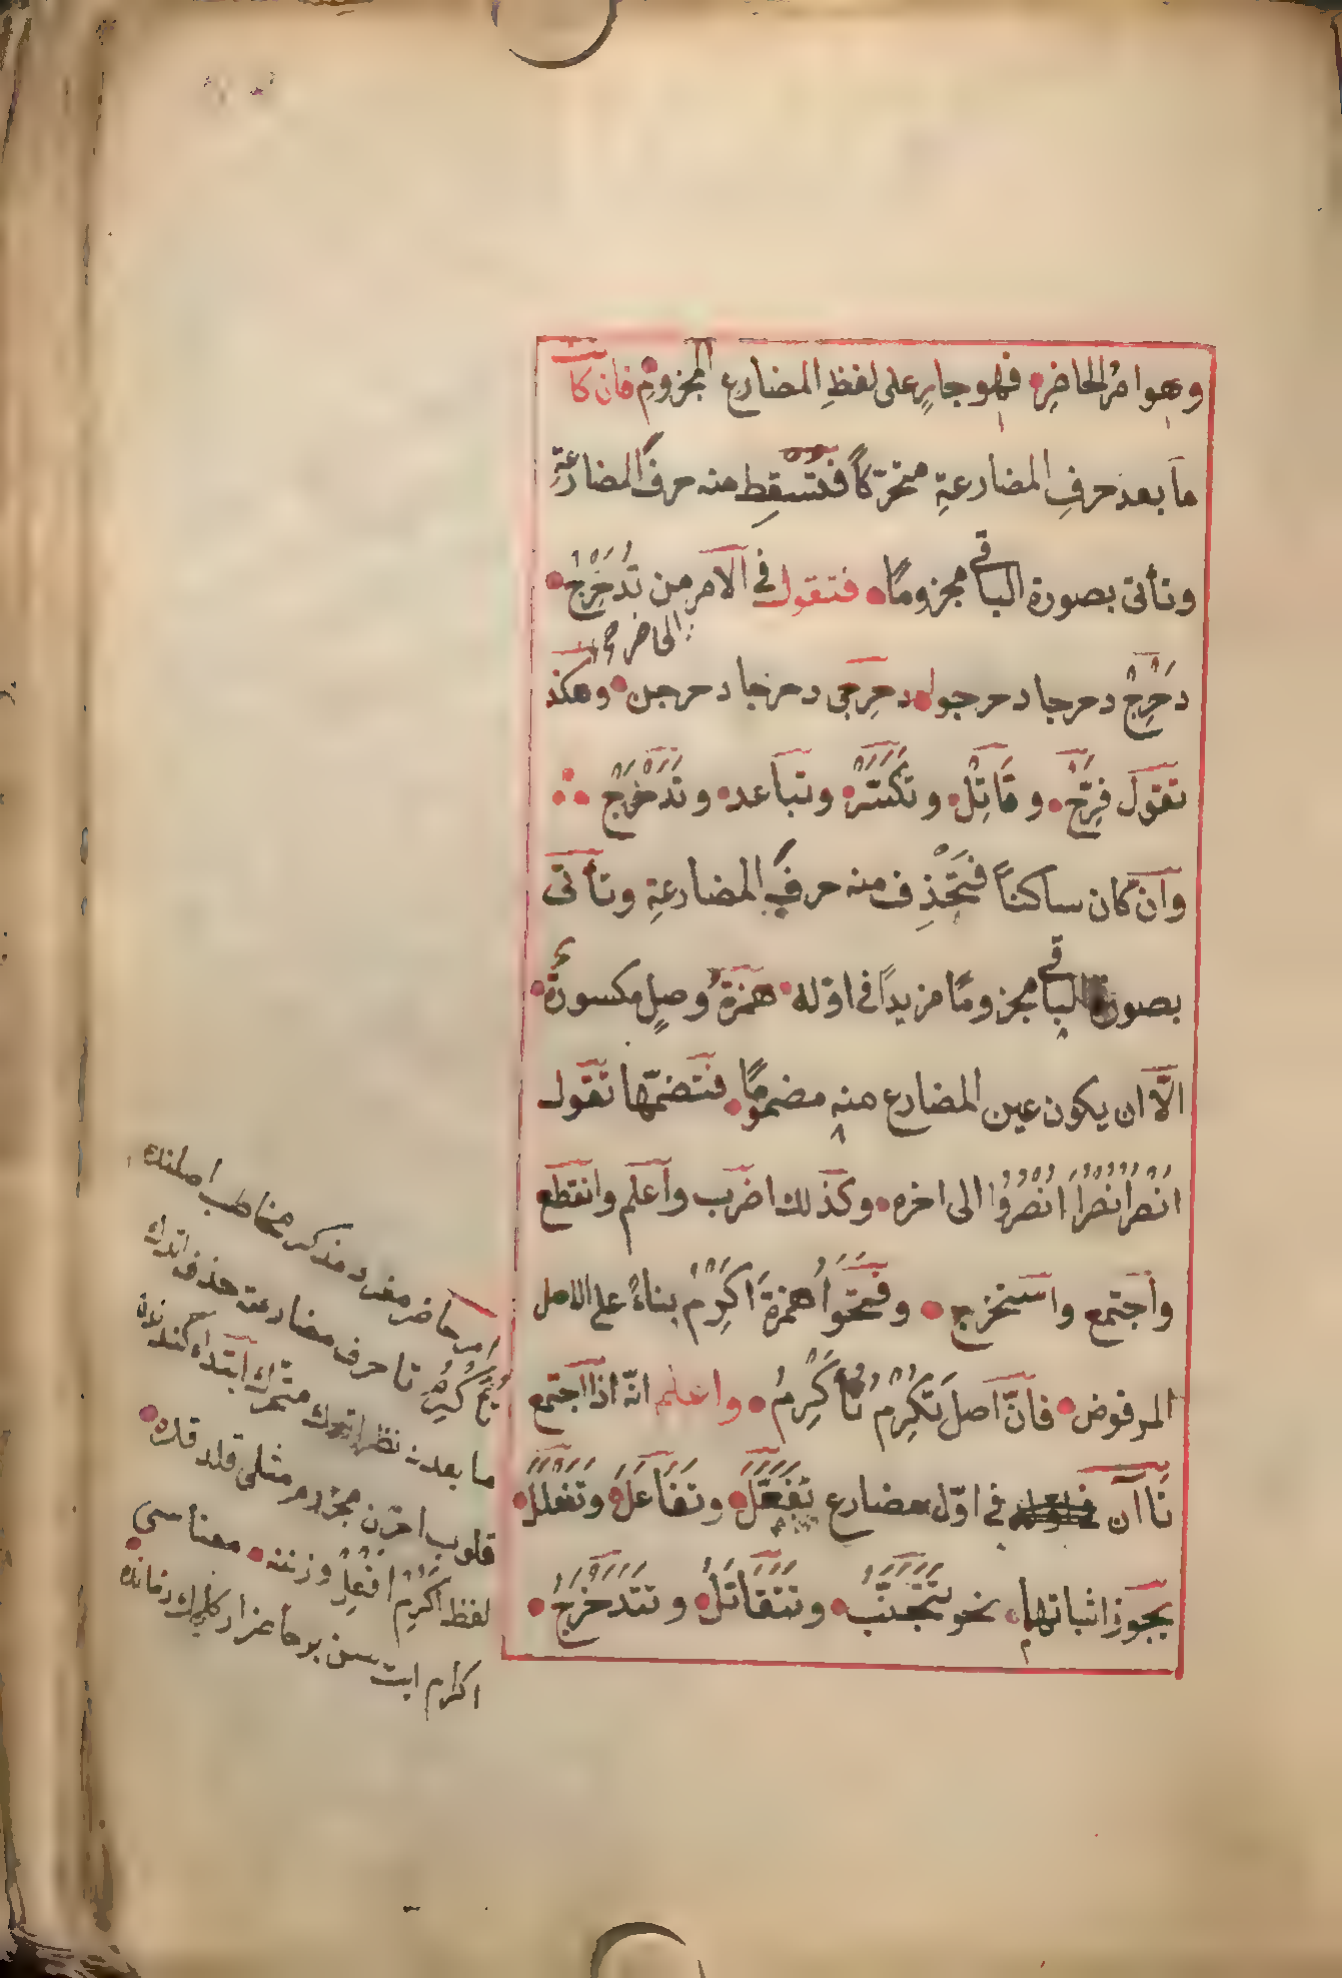 وهو امرُ الحاضِرِ فهو جارٍ على لفظِ المضارع المجزومِ فان كا
ما بعد حرفِ المضارعةِ متحرّكاً فتُسقِط منه حرفَ المضارعةِ
وتأتى بصورة الباقى مجزومًا فتقول فى الامر من تُدَحْرِجُ
الحاضر
دَحْرِجْ دحرجا دحرجوا دحرجى دحرجا دحرجن وهكذ
تقول فرّحْ و قَاتِلْ وتكسّرْ وتباعد وتدحرجْ
وان كان ساكناً فتحذف منه حرف المضارعةِ وتأتى
بصورة الباقى مجزومًا مزيدًا فى اوّله همزةُ وصلٍ مكسورةٌ
الّا ان يكون عين المضارع منه مضمومًا فتضمّها تقول
اُنْصُرْ اُنْصُرَا اُنْصُرُوا الى اخره وكذلك اضرب واعلم وانقطع
واجتمع واستخرج وفتحوا همزةَ اَكْرِمْ بناءً على الاصل
المرفوض فانّ اصل تُكْرِمُ تُأَكْرِمُ واعلم انّه اذا اجتمع
تَاآن فى اوّل مضارع تَفَعَّلَ وتَفَاعَلَ وتَفَعْلَلَ
يجوز اثباتهما نحو تَتَجَنَّبُ وتتقاتلُ وتتدحرجُ
امر حاضر مفرد مذكر مخاطب اصلنك
تا حرف مضارعة حذف اتدك
ما بعدنه نظر اتدك متحرك ابتداء
قلوب اخرن مجزوم مثلى قلد قلده
لفظ اَكْرِمْ اَفْعِلْ وزننه معناسى
اكرام ايت سن بر حاضر ار